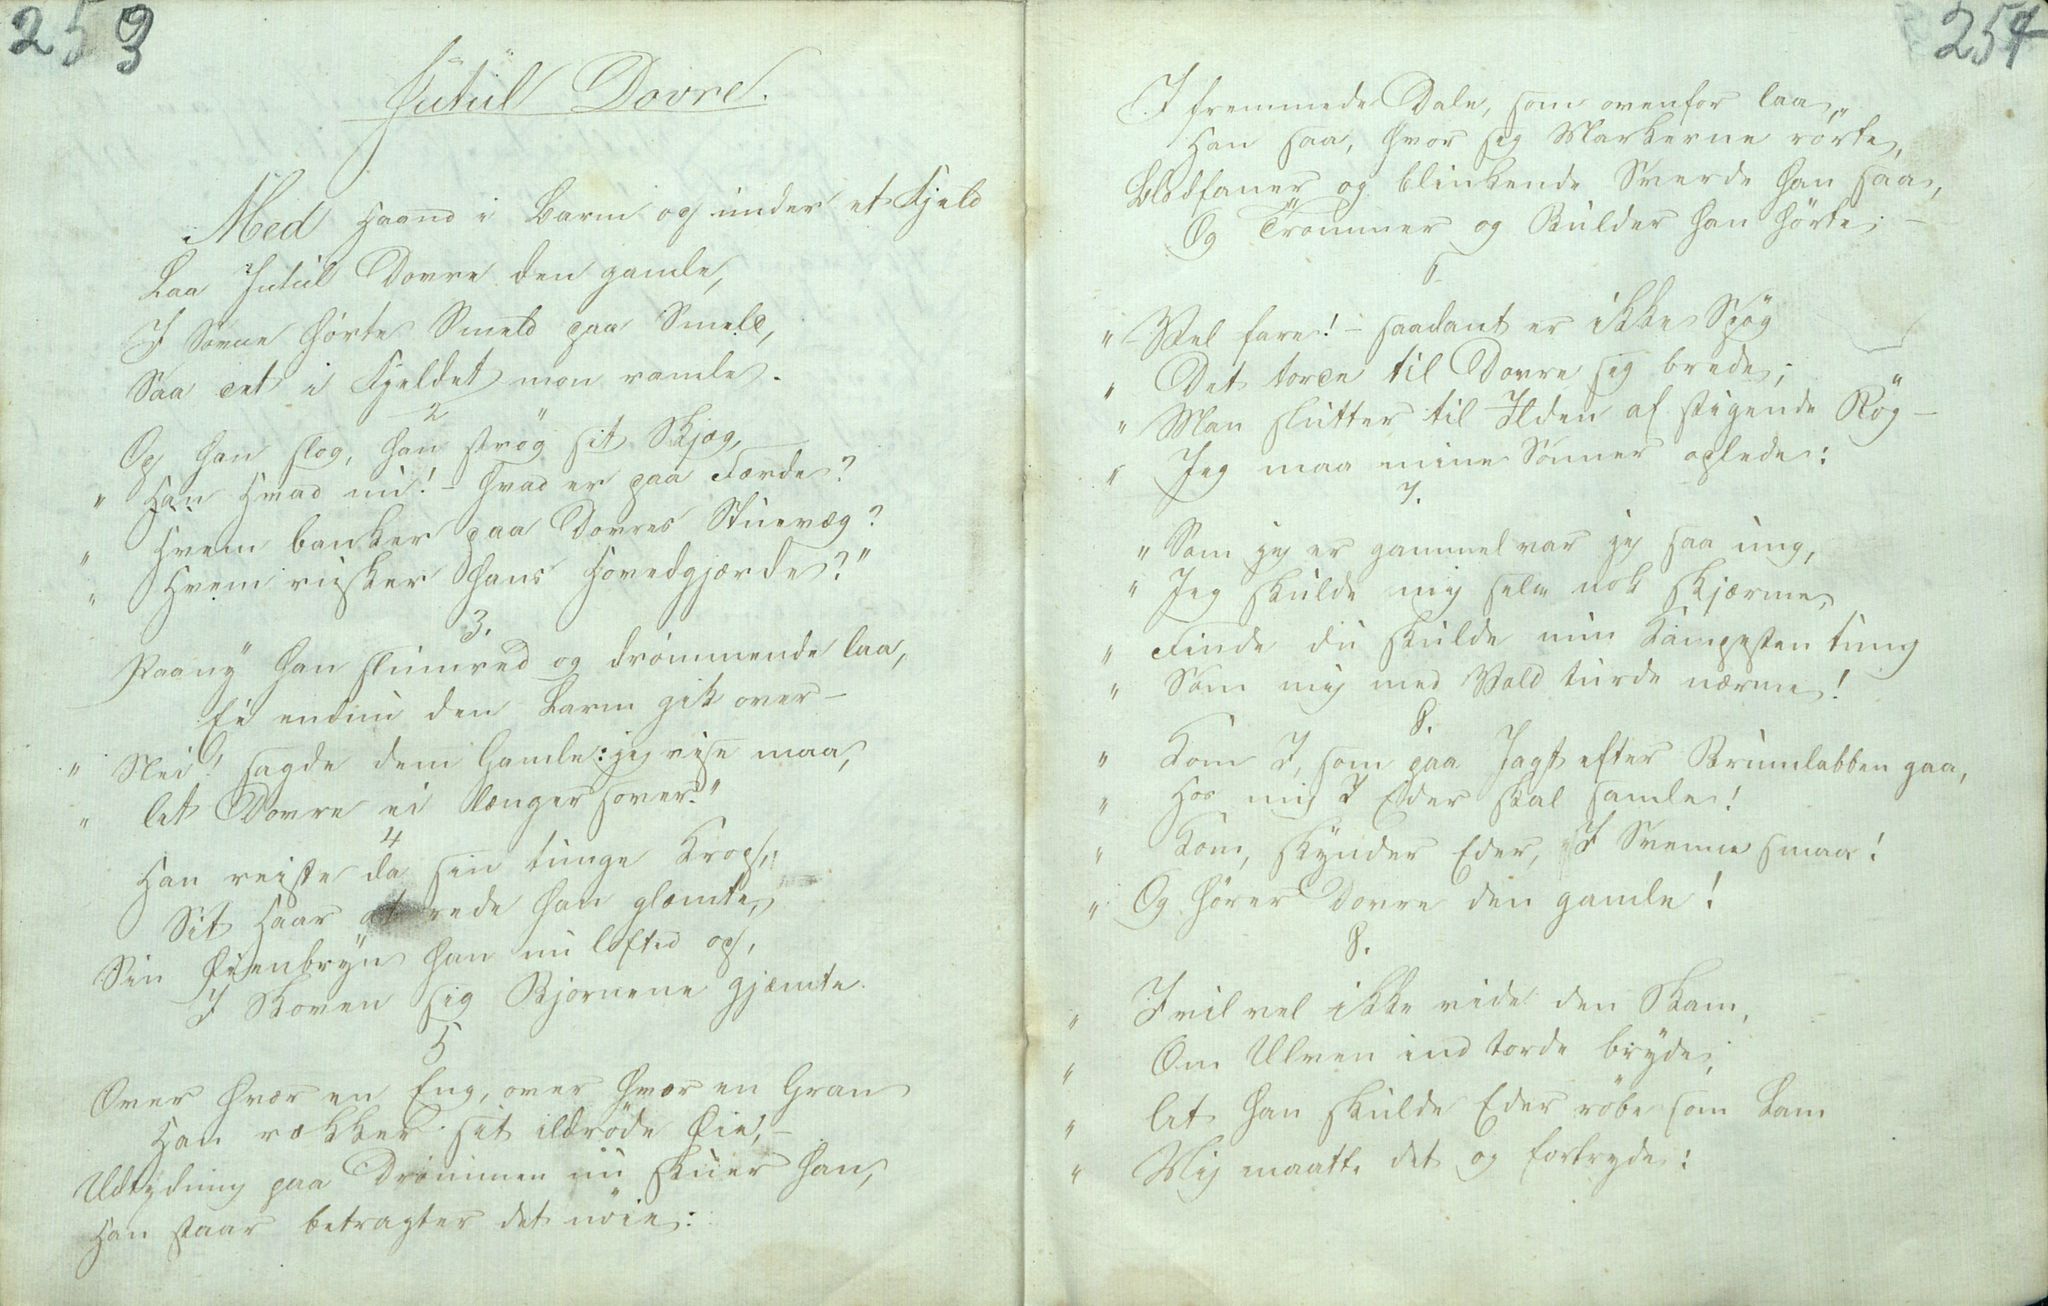 253
Jutul Dovre.
Med Haand i Barm og under et Fjeld
Laa Jutul Dovre den gamle,
I Sövne hörte Smeld paa Smeld,
Saa det i Fjeldet mon ramle.
2
Op han slog, han strög sit Skjæg,
" Han Hvad nu! – hvad er paa Færde?
" Hvem banker paa Dovres Stuevæg?
" Hvem rusker hans Hovedgjærde?"
3.
Paany han slumred og drömmende laa,
Ei endnu den Larm gik over –
" Nei! sagde dem Gamle: jeg reise maa,
" let Dovre ei længer sover."
4
Han reiste da sin tunge Krop,
Sit Haar at rede han glemte,
Sin Öienbryn han nu lofted op,
I Skoven sig Bjornene gjemte.
5
Over hvær en Eng, over hvær en Gran
Han rækker sit ildröde Öie, –
Udtydning paa Drömmen nu skuer han,
Han staar betragter det nöie:
254
I fremmede Dale, som ovenfor laa,
Han saa, hvor sig Markerne rörte,
Blodfaner og blinkende Sverde han saa,
Og Trommer og Bulder han hörte; –
6
" – Vel fare! – saadant er ikke Spög
" Det torde til Dovre sig brede;
" Man slutter til Ilden af stigende Rög –
" Jeg maa mine Sönner oplede:
7.
" Som jeg er gammel var jeg saa ung,
" Jeg skulde mig selv nok skjærme,
" Finde du skulde min Kampesten tung
" Som mig med Vold turde nærme!
8.
" Kom I, som paa Jagt efter Brumlabben gaa,
" Hos mig I Eder skal samle!
" Kom, skynder Eder, I Svenne smaa!
" Og hörer Dovre den gamle!
8.
" I vil vel ikke vide den Skam,
" Om Ulven ind torde bryde;
" let han skulde Eder röbe som Lam
" Mig maatte det og fortryde: